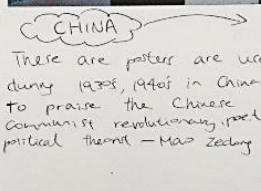 CHINA
These are posters are
during 1930s, 1940s in China
to praise the Chinese
communist revolutionary, poet
political theorist - Mao Zedong